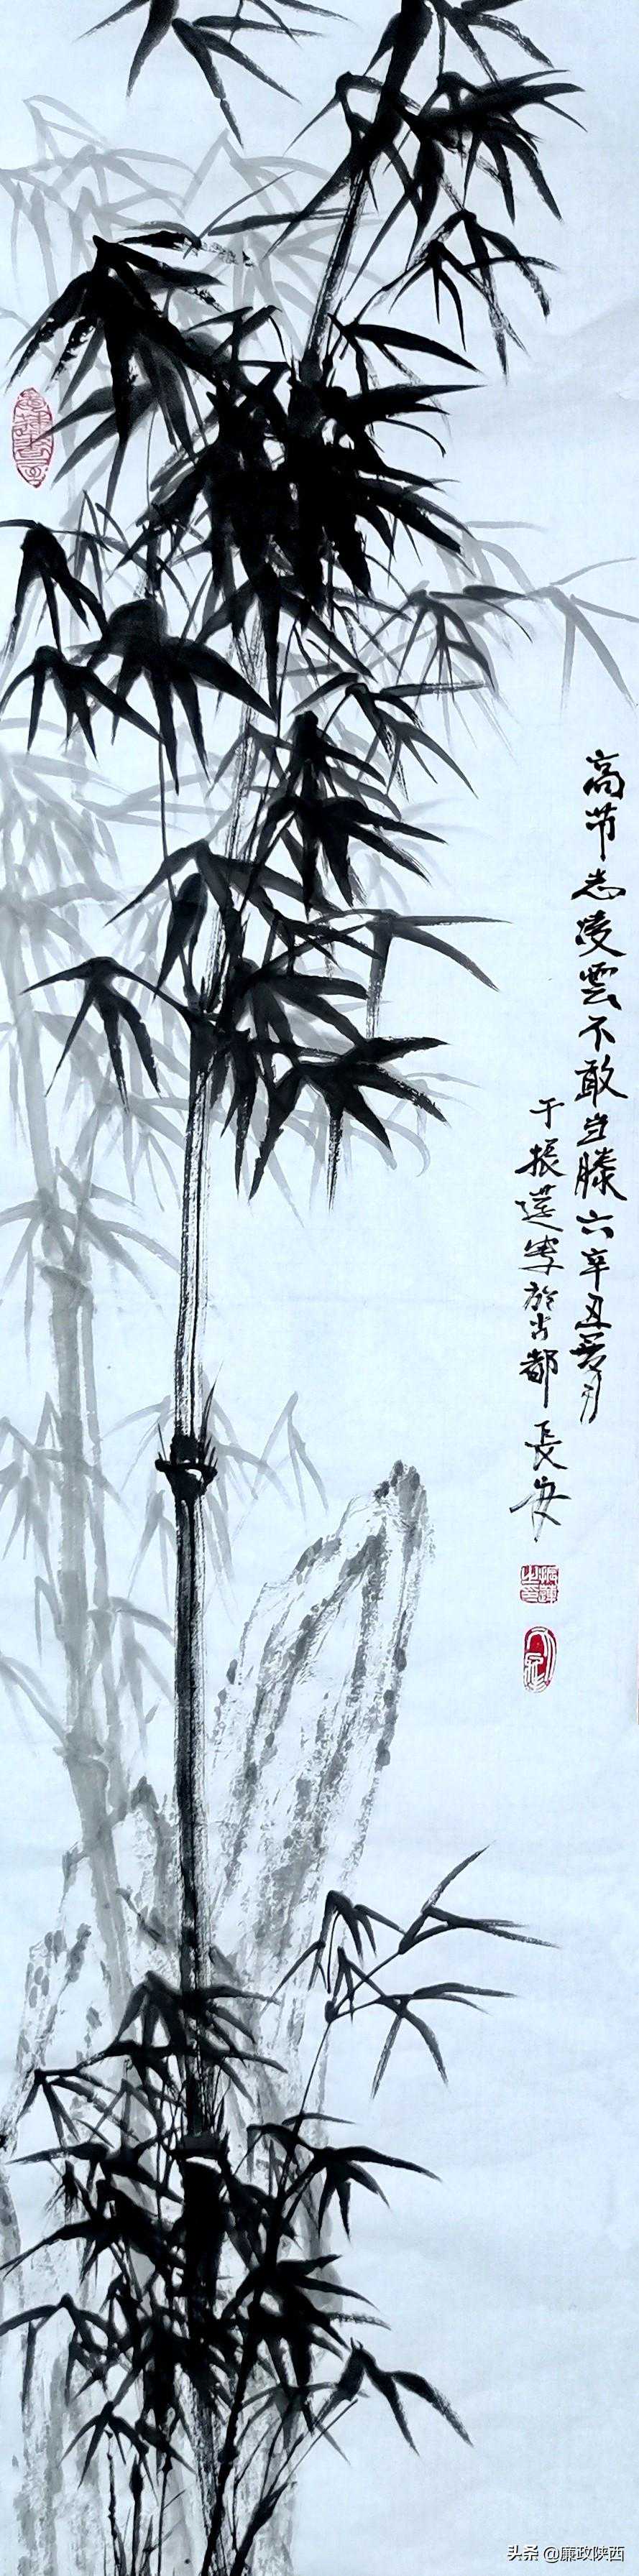 高节志凌雲不敢当滕六辛丑夏月
于振莲写於古都長安
头条 @廉政陕西